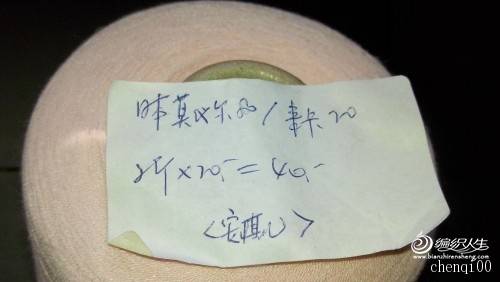 日本莫代尔80/素卡20
2斤×20.-=40.-
编织人生
www.bianzhirensheng.com
chenqi00